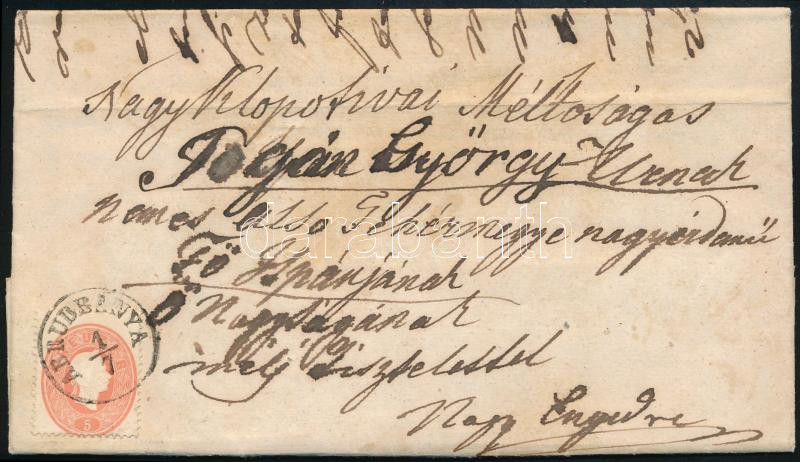 Nagy Klopotivai Méltoságos
Pogján György Urnak
Nemes Alsó Fehérmegye nagyérdemű
Fö Ispánjának
Ö Nagyságának
mély Tisztelettel
Nagy Enyedre
ABRUDBÁNYA
1/7
5
darabanth